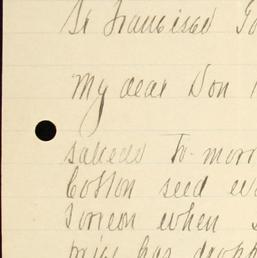 Sr Francisco
My dear Don
to-morr
Cotton seed
Torreon when
price has dropp